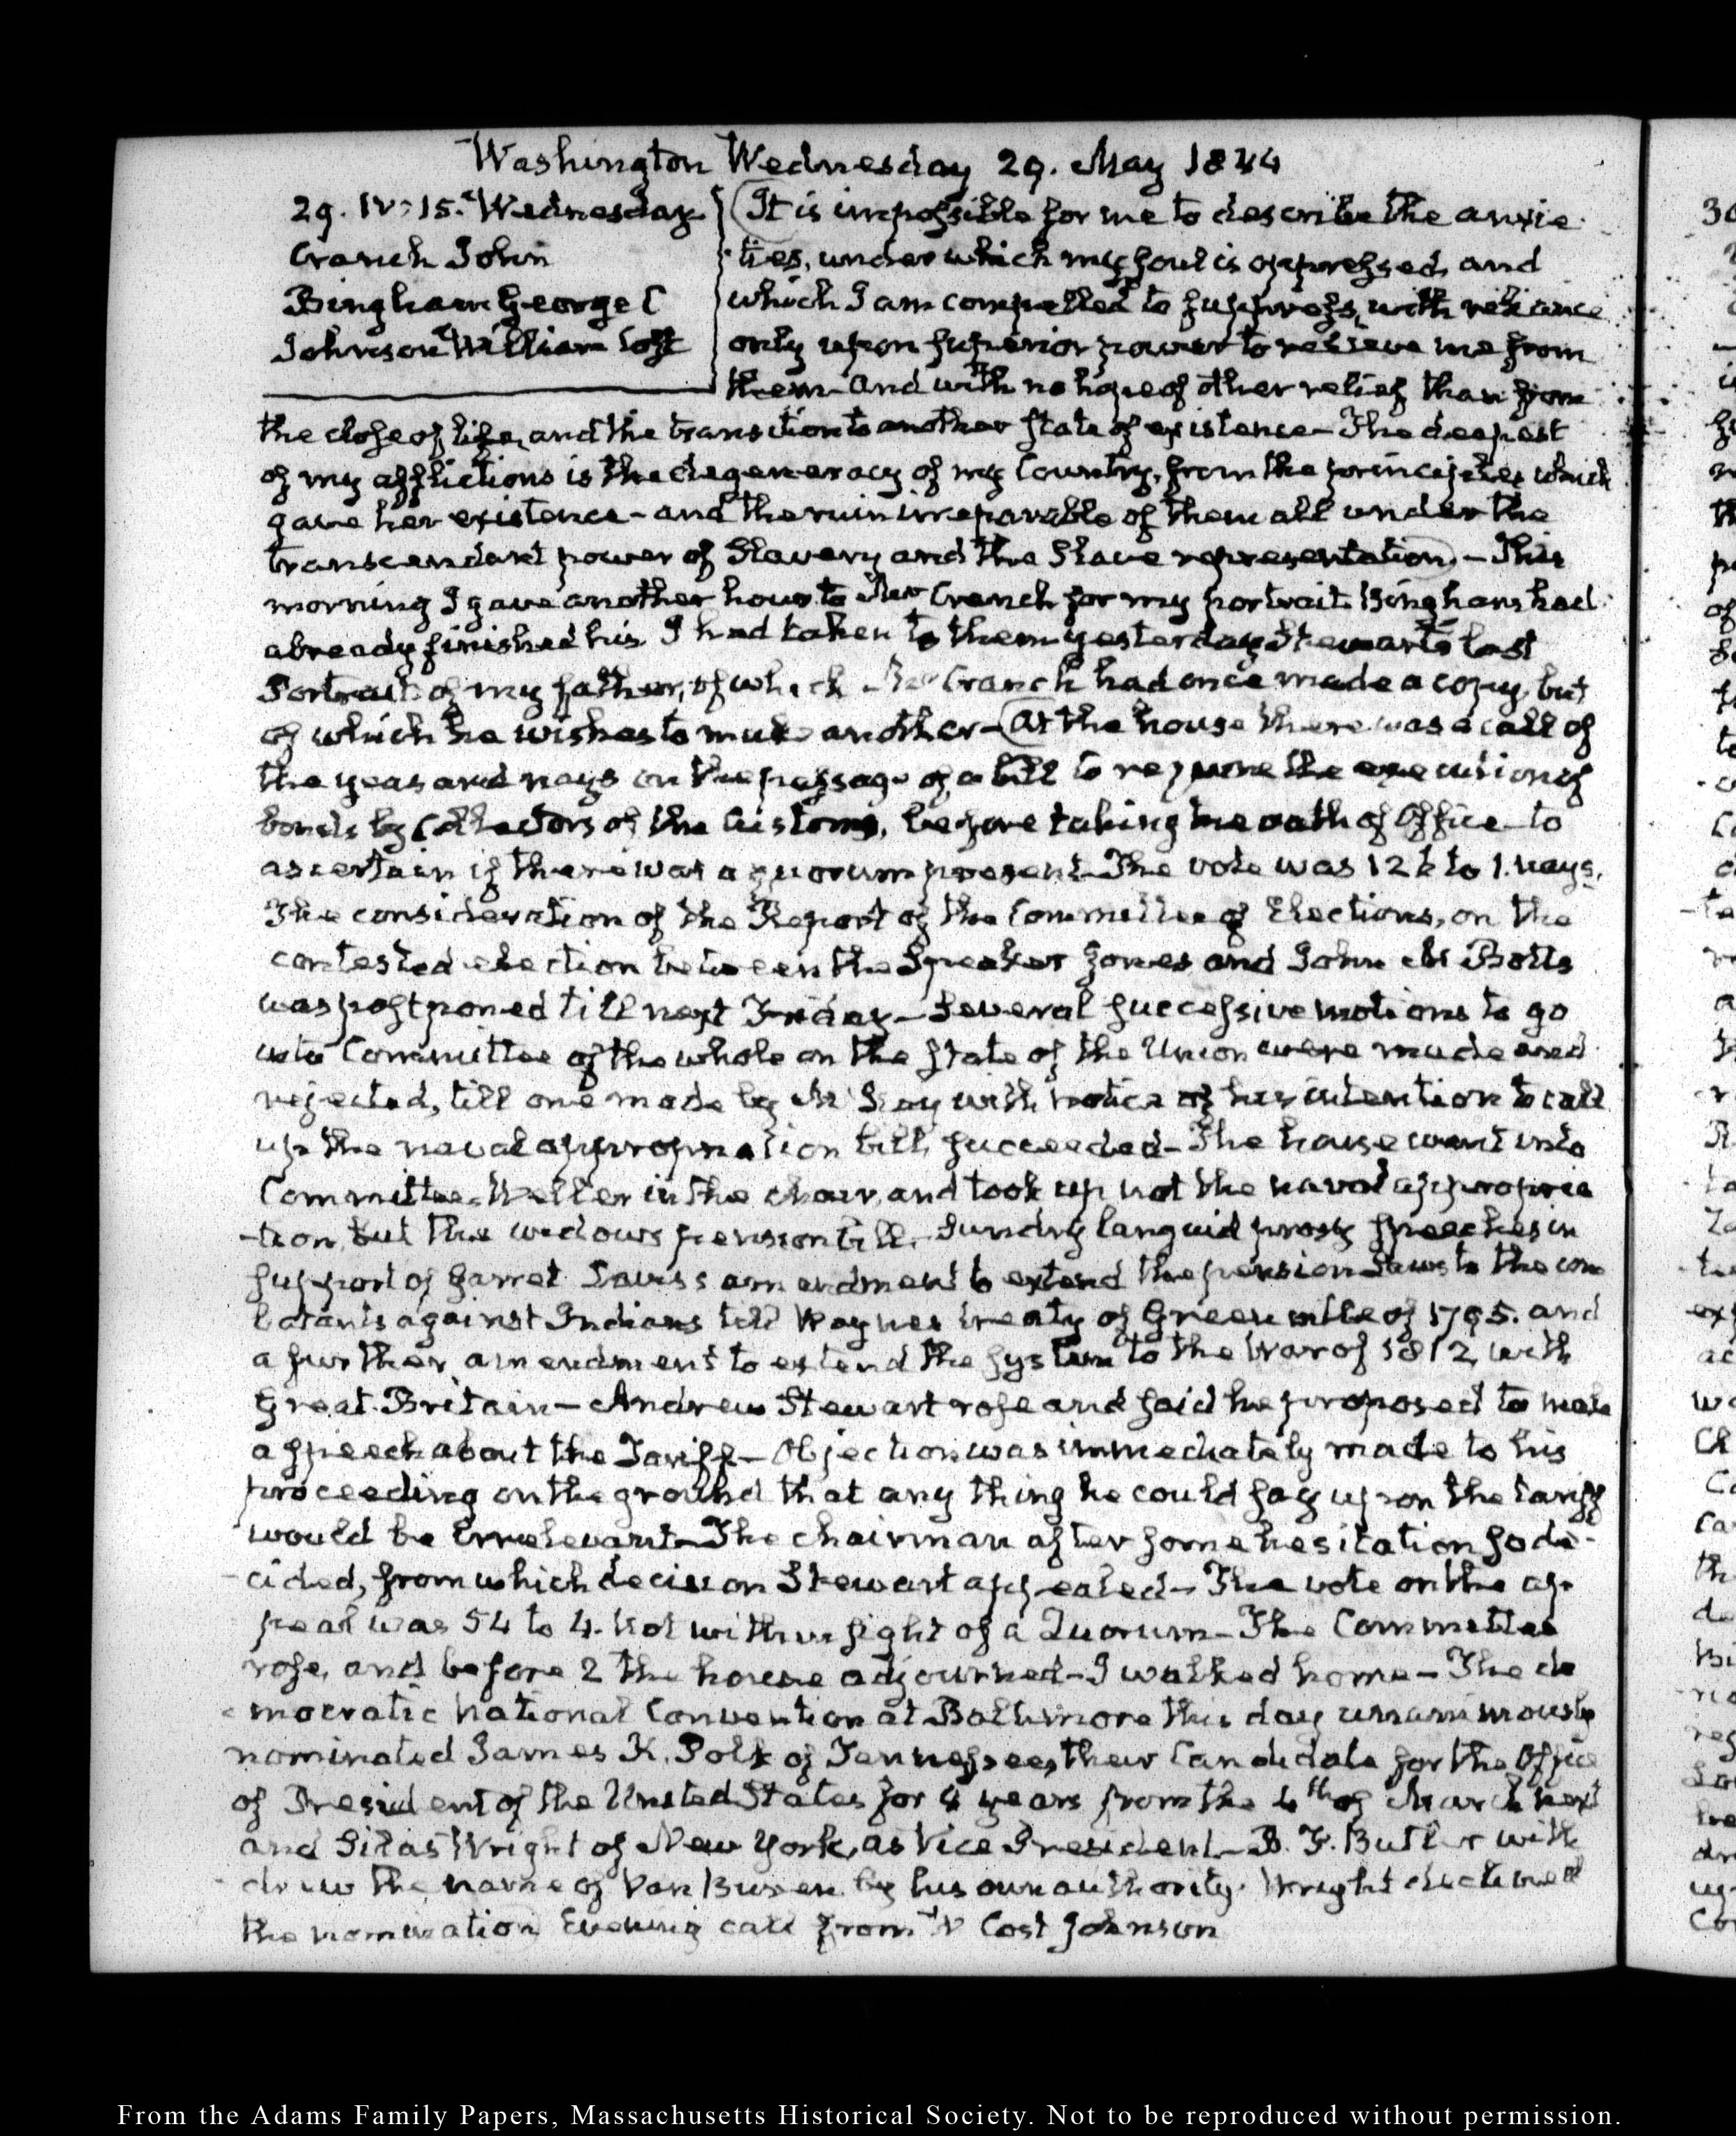 Washington Wednesday 29. May 1844
29. IV:15. Wednesday
Cranch John
Bingham George C
Johnson William Cost
It is impossible for me to describe the anxie-
ties, under which my soul is oppressed, and
which I am compelled to suppress, with reliance
only upon superior power to relieve me from
them and with no hope of other relief than from
the close of life, and the transition to another state of existence— The deepest
of my afflictions is the degeneracy of my Country, from the principles which
gave her existence— and the ruin irreparable of them all under the
transcendant power of Slavery and the Slave representation.— This
morning I gave another hour to Mr Cranch for my portrait. Bingham had
already finished his. I had taken to them yesterday Stewart's last
Portrait of my father, of which Mr Cranch had once made a copy but
of which he wishes to make another— At the house there was a call of
the yeas and nays on the passage of a bill to require the execution of
bonds by Collectors of the Customs, before taking the oath of Office— to
ascertain if there was a quorum present— The vote was 126 to 1. nays.
The consideration of the Report of the Committee of Elections, on the
contested election between the Speaker Jones and John M Botts
was postponed till next Friday— Several successive motions to go
into Committee of the whole on the state of the Union were made and
rejected, till one made by with notice of his intention to call
up the naval appropriation bill, succeeded— The house went into
Committee, Weller in the chair, and took up not the naval appropria
-tion, but the widows pension bill.— Sundry languid prosy speeches in
support of Garret Davis's amendment to extend the pension Laws to the com
batants against Indians till Waynes treaty of Greenville of 1795. and
a further amendment to extend the system to the War of 1812, with
Great-Britain— Andrew Stewart rose and said he proposed to make
a speech about the Tariff— Objection was immediately made to his
proceeding on the ground that any thing he could say upon the tariff
would be irrelevant— The chairman after some hesitation so de-
-cided, from which decision Stewart appealed— The vote on the ap-
peal was 54 to 4. Not within sight of a Quorum— The Committee
rose, and before 2 the house adjourned— I walked home— The de
-mocratic National Convention at Baltimore this day unanimously
nominated James K. Polk of Tennessee, their Candidate for the Office
of President of the United States for 4 years from the 4th of March next
and Silas Wright of New York, as Vice President— B. F. Butler with
-drew the name of Van Buren by his own authority. Wright declined
the nomination Evening call from W Cost Johnson
From the Adams Family Papers, Massachusetts Historical Society. Not to be reproduced without permission.